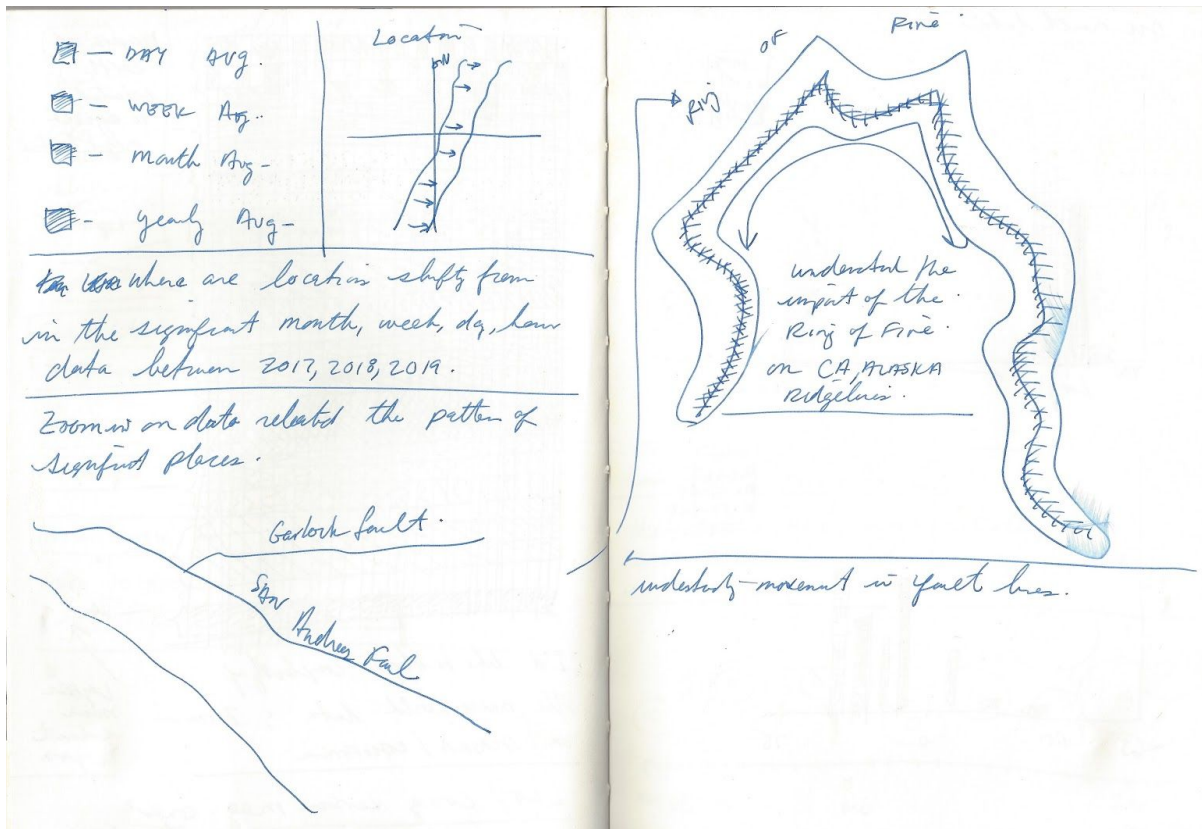 - DAY AVG.
- WEEK Avg.
- month Avg -
- yearly Avg -
Location
N
where are location shifts from
in the signifiant month, week, day, hour
data between 2017, 2018, 2019.
Zoom in on data related the pattern of
signifiant places.
Garlock fault.
SAN
Andreas Faul
Ring
of
Fire
understand the
impact of the
Ring of Fire
on CA, ALASKA
Ridgelines.
understandy - movement in fault lines.